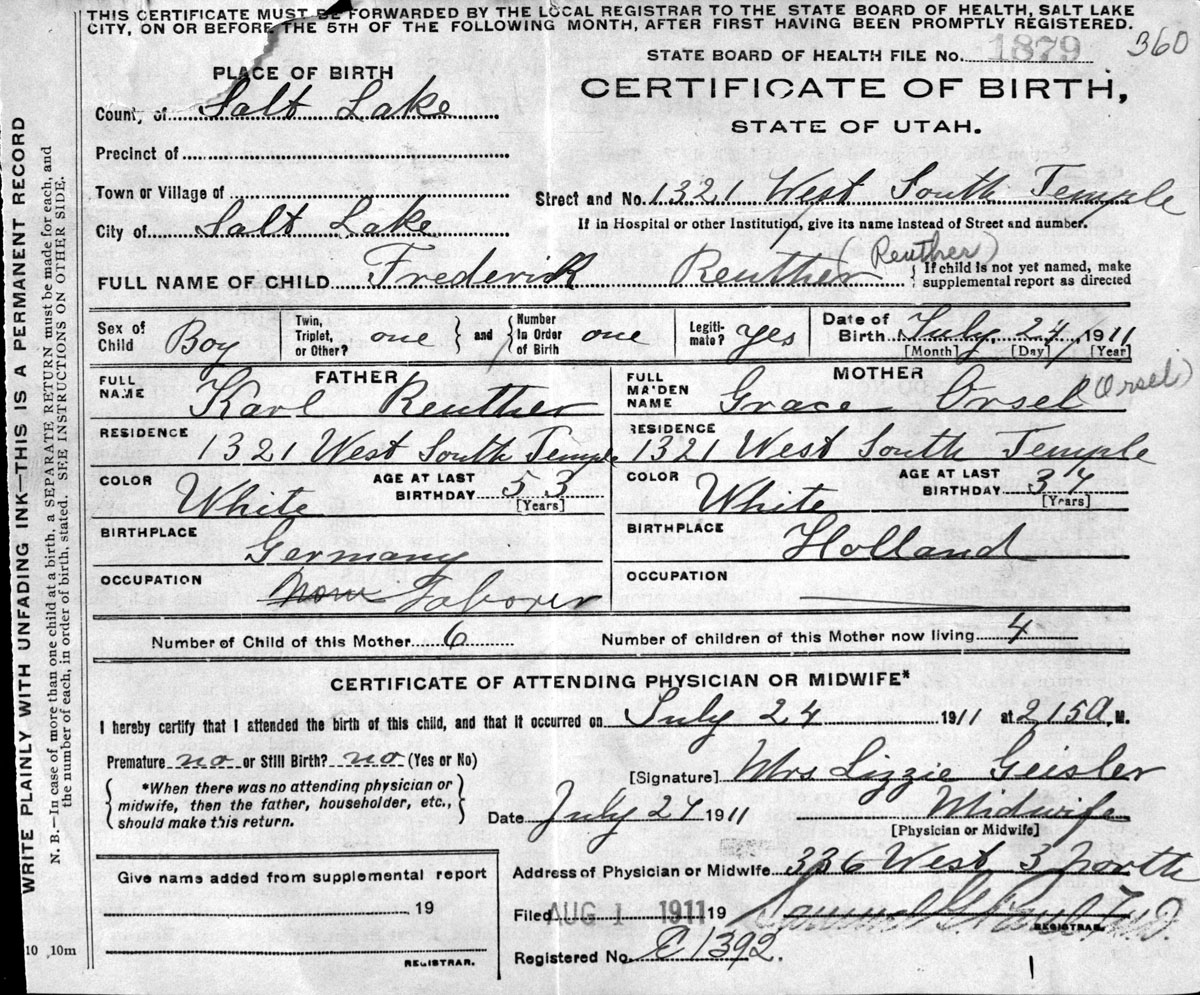 THIS CERTIFICATE MUST BE FORWARDED BY THE LOCAL REGISTRAR TO THE STATE BOARD OF HEALTH, SALT LAKE
CITY, ON OR BEFORE THE 5TH OF THE FOLLOWING MONTH, AFTER FIRST HAVING BEEN PROMPTLY REGISTERED.
360
STATE BOARD OF HEALTH FILE No. 1879
CERTIFICATE OF BIRTH,
STATE OF UTAH.
PLACE OF BIRTH
County of Salt Lake
Precinct of
Town or Village of
City of Salt Lake
Street and No. 1321 West South Temple
If in Hospital or other Institution, give its name instead of Street and number.
FULL NAME OF CHILD Frederick Reuther (Reuther)
{ If child is not yet named, make
supplemental report as directed
Sex of Child Boy
Twin, Triplet, or Other? one } and { Number In Order of Birth one
Legitimate? Yes
Date of Birth July 24, 1911
[Month] [Day] [Year]
FATHER
FULL NAME Karl Reuther
RESIDENCE 1321 West South Temple
COLOR White
AGE AT LAST BIRTHDAY 53
[Years]
BIRTHPLACE Germany
OCCUPATION None Laborer
MOTHER
FULL MAIDEN NAME Grace Orsel (Orsel)
RESIDENCE 1321 West South Temple
COLOR White
AGE AT LAST BIRTHDAY 34
[Years]
BIRTHPLACE Holland
OCCUPATION
Number of Child of this Mother 6
Number of children of this Mother now living 4
CERTIFICATE OF ATTENDING PHYSICIAN OR MIDWIFE*
I hereby certify that I attended the birth of this child, and that it occurred on July 24 1911 at 215 a M.
Premature no or Still Birth? no (Yes or No)
{ *When there was no attending physician or
midwife, then the father, householder, etc.,
should make this return. }
[Signature] Mrs Lizzie Geisler
Date July 24 1911
Midwife
[Physician or Midwife]
Address of Physician or Midwife 336 West 3 North
Filed AUG 1 1911 19
Samuel G. Paul M.D.
REGISTRAR.
Registered No. C 1392.
Give name added from supplemental report
19
REGISTRAR.
10 10m
WRITE PLAINLY WITH UNFADING INK—THIS IS A PERMANENT RECORD
N. B.—In case of more than one child at a birth, a SEPARATE RETURN must be made for each, and
the number of each, in order of birth, stated. SEE INSTRUCTIONS ON OTHER SIDE.